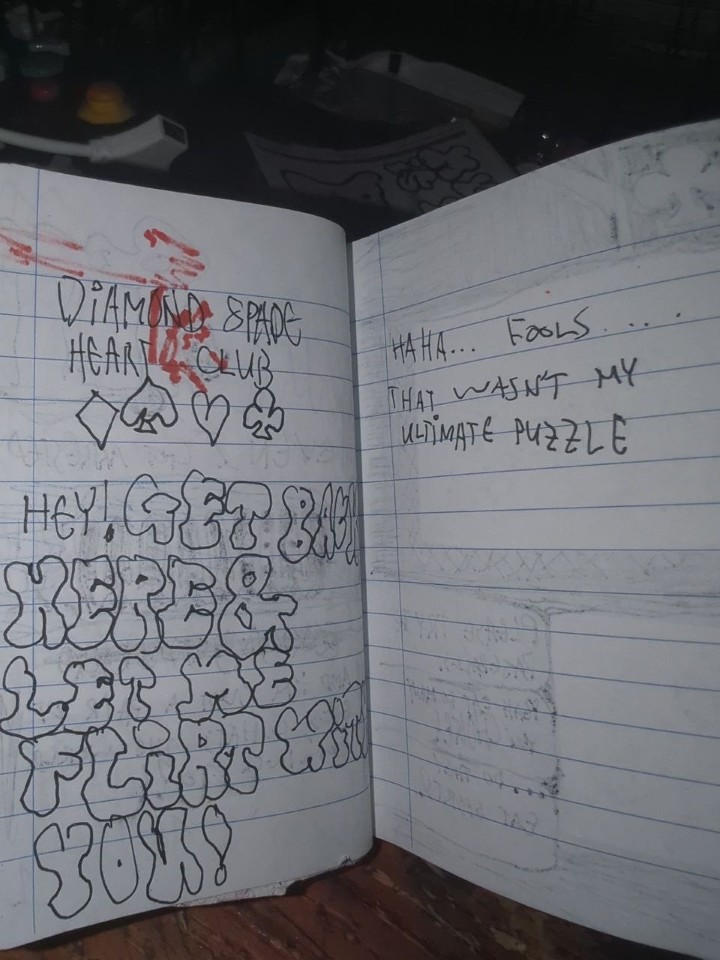 DiAMOND SPADE
HEART CLUB
HEY! GET BACK
HERE &
LET ME
FLiRT WITH
YOU!
HAHA... FOOLS.....
THAT WASN'T MY
ULTIMATE PUZZLE